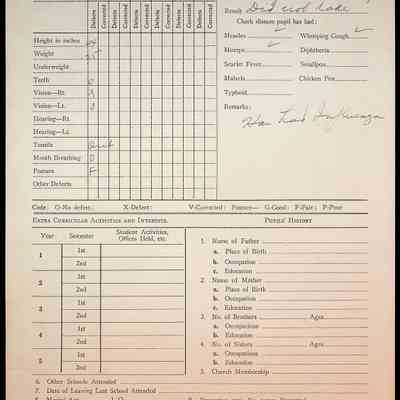 Defects Corrected Defects Corrected Defects Corrected Defects Corrected Defects Corrected Defects Corrected
Height in inches
Weight
Underweight
Teeth 0
Vision—Rt.
Vision—Lt.
Hearing—Rt.
Hearing—Lt.
Tonsils out
Mouth Breathing 0
Posture F
Other Defects
Result Did not take
Check disease pupil has had:
Measles ✓ Whooping Cough ✓
Mumps ✓ Diphtheria
Scarlet Fever Smallpox
Malaria Chicken Pox
Typhoid
Remarks:
Has had Influenza
Code: O-No defect; X-Defect; V-Corrected; Posture— G-Good; F-Fair; P-Poor
Extra Curricular Activities and Interests.
Year Semester Student Activities, Offices Held, etc.
1 1st
2nd
2 1st
2nd
3 1st
2nd
4 1st
2nd
5 1st
2nd
Pupils' History
1. Name of Father
a. Place of Birth
b. Occupation
c. Education
2. Name of Mother
a. Place of Birth
b. Occupation
c. Education
3. No. of Brothers Ages
a. Occupations
b. Education
4. No. of Sisters Ages
a. Occupation
b. Education
5. Church Membership
6. Other Schools Attended
7. Date of Leaving Last School Attended